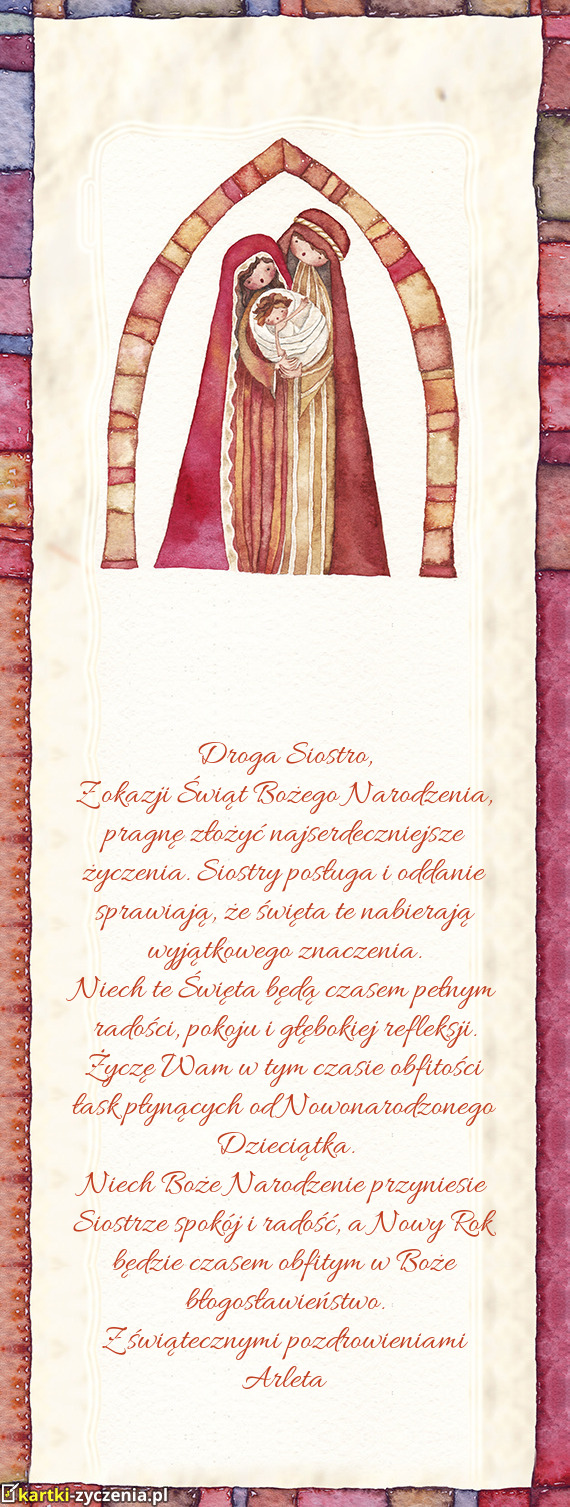 Droga Siostro,
Z okazji Świąt Bożego Narodzenia,
pragnę złożyć najserdeczniejsze
życzenia. Siostry posługa i oddanie
sprawiają, że święta te nabierają
wyjątkowego znaczenia.
Niech te Święta będą czasem pełnym
radości, pokoju i głębokiej refleksji.
Życzę Wam w tym czasie obfitości
łask płynących od Nowonarodzonego
Dzieciątka.
Niech Boże Narodzenie przyniesie
Siostrze spokój i radość, a Nowy Rok
będzie czasem obfitym w Boże
błogosławieństwo.
Z świątecznymi pozdrowieniami
Arleta
kartki-zyczenia.pl